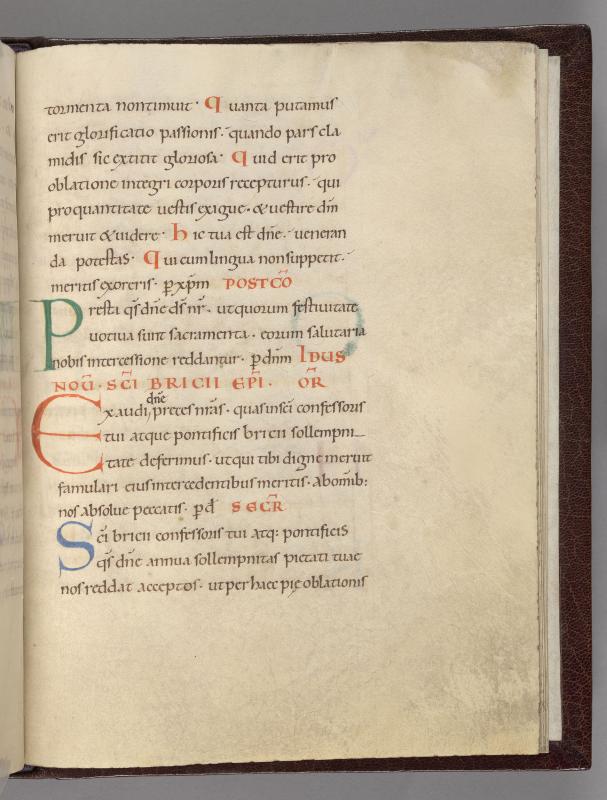 tormenta nontimuit· Quanta putamus
erit glorificatio passionis·quando pars cla
midis sic extitit gloriosa· Quid erit pro
oblatione integri corporis recepturus· qui
proquantitate uestis exigue·&uestire dm̄
meruit &uidere· Hic tua est dn̄e· ueneran
da potestas· Qui cum lingua nonsuppetit·
meritis exoreris· p̲ xp̄m POSTCŌ
Presta qs̄ dn̄e ds̄ nr̄· utquorum festiuitate
uotiua sunt sacramenta· eorum salutaria
nobis intercessione reddantur· p̲ dn̄m IDUS
NOU̅· SC̅I BRICII EPI̅· OR̅
Exaudi, dn̄e preces nr̄as· quas insc̄i confessoris
tui atque pontificis bricii sollempni_
tate deferimus· utqui tibi digne meruit
famulari eius intercedentibus meritis· abom̄ib:
nos absolue peccatis· p̲ d̄ SECR̅
Sc̄i bricii confessoris tui atq: pontificis
qs̄ dn̄e annua sollempnitas pietati tuae
nos reddat acceptos· ut per haec pię oblationis